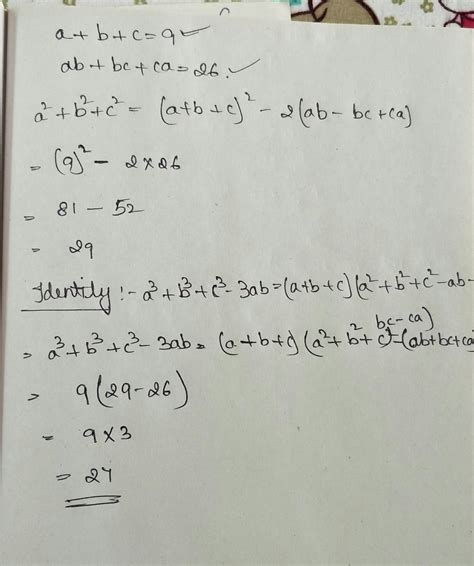 a + b + c = 9 ✓
ab + bc + ca = 26. ✓
a² + b² + c² = (a+b+c)² - 2(ab - bc + ca)
= (9)² - 2 × 26
= 81 - 52
= 29
Identity :- a³ + b³ + c³ - 3ab = (a+b+c)(a² + b² + c² - ab -
bc - ca)
= a³ + b³ + c³ - 3ab = (a+b+c)(a² + b² + c²)-(ab+bc+ca
= 9(29-26)
= 9 × 3
= 27